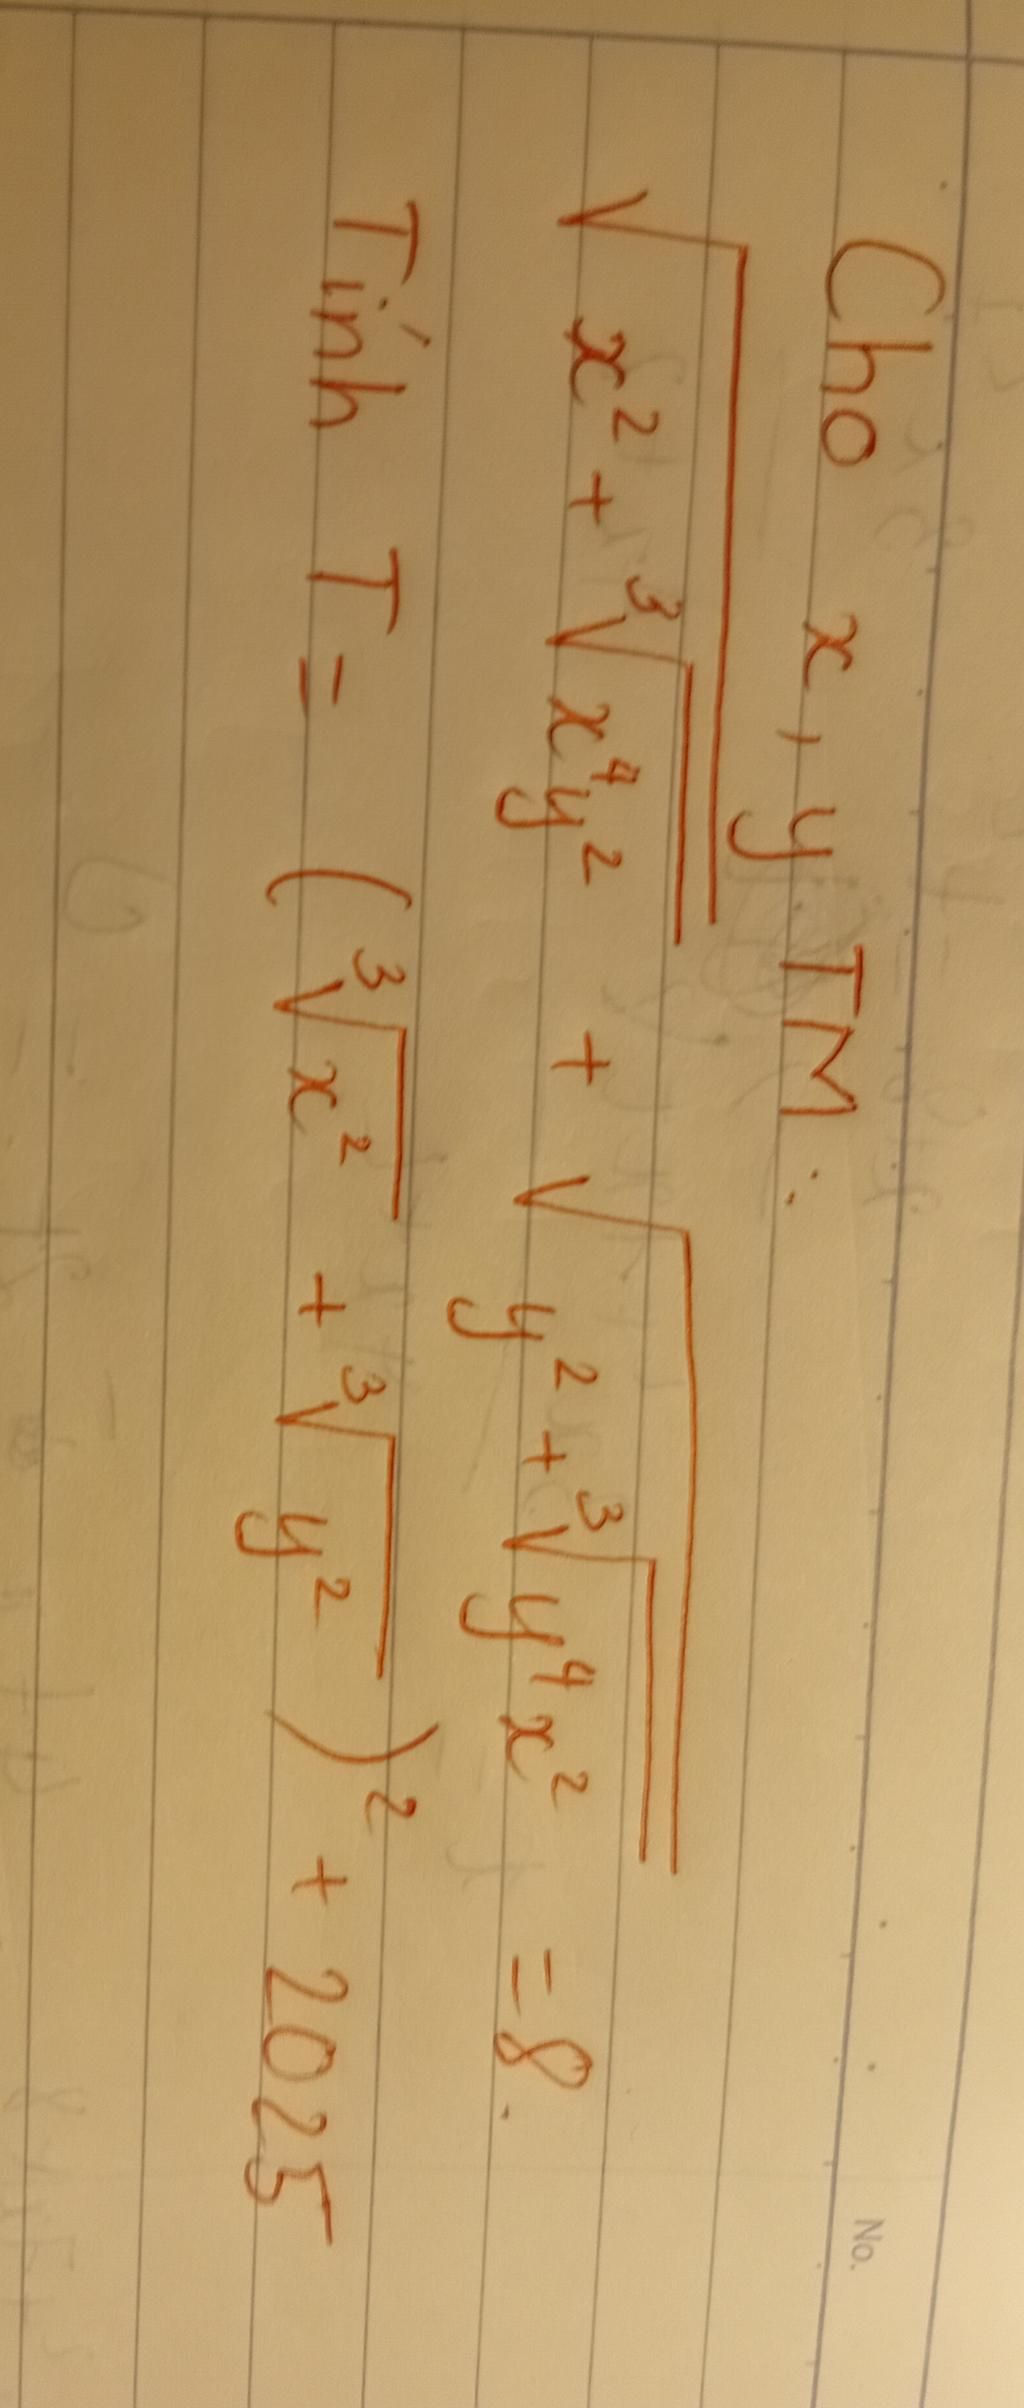 No.
Cho x, y TM:
√(x² + ∛(x⁴y²)) + √(y² + ∛(y⁴x²)) = 8.
Tính T = (∛(x²) + ∛(y²))² + 2025